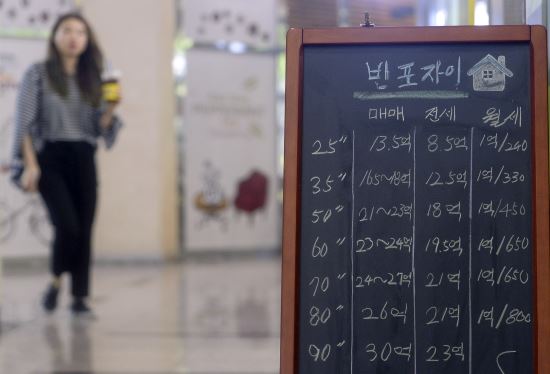 반포자이
매매 전세 월세
25" 13.5억 8.5억 1억/240
35" 16.5~18억 12.5억 1억/330
50" 21~23억 18억 1억/450
60" 23~24억 19.5억 1억/650
70" 24~27억 21억 1억/650
80" 26억 21억 1억/800
90" 30억 23억